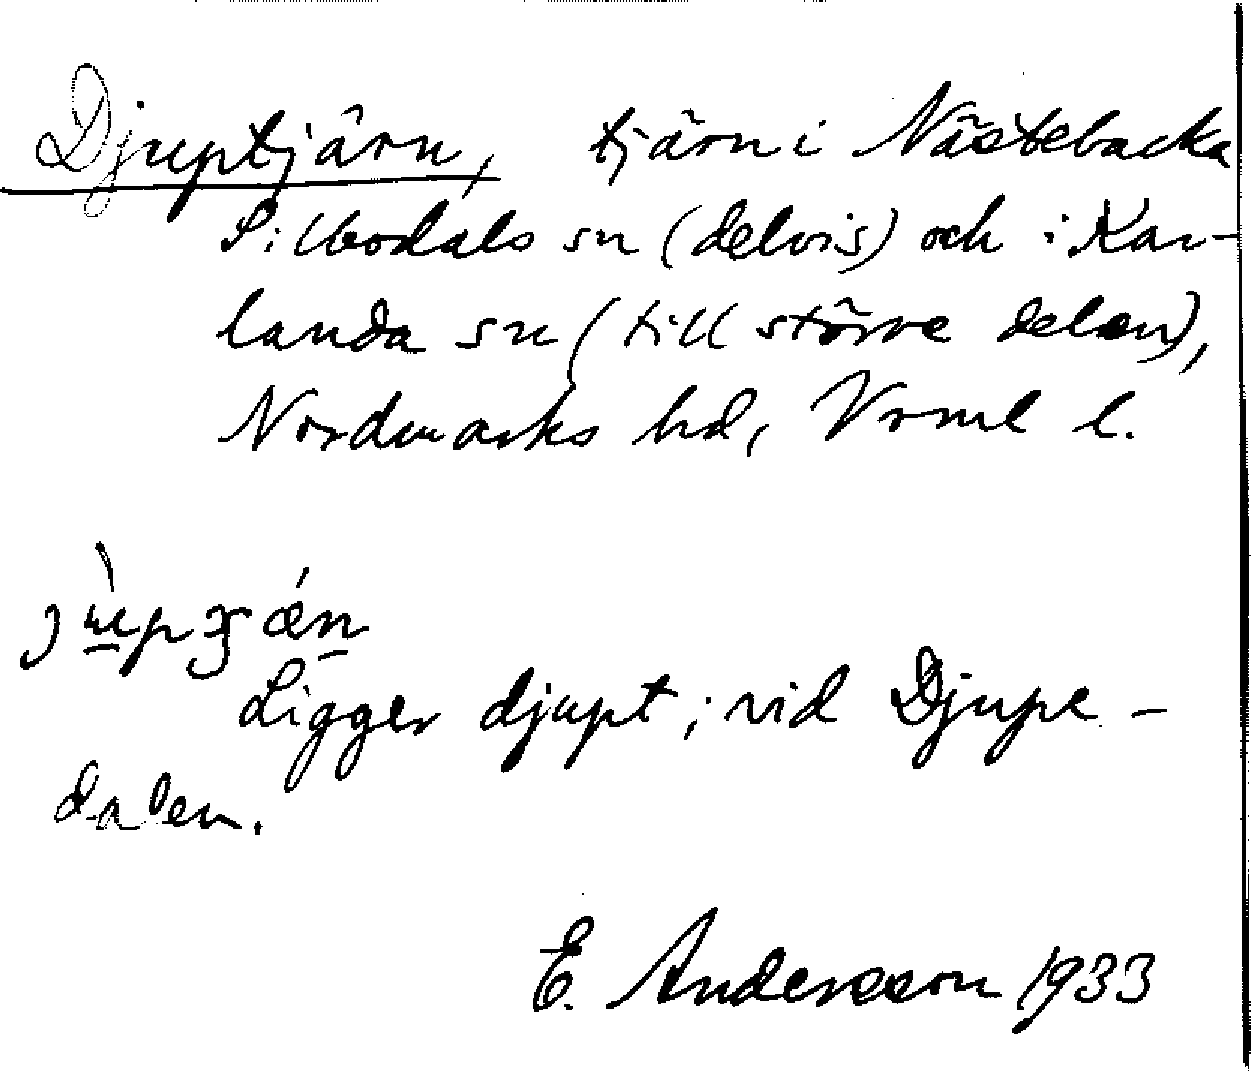 Djuptjärn, tjärn i Nästebacka
Sillbodals sn (delvis) och i Kar-
landa sn (till större delen),
Nordmarks hd, Vrml l.
Ligger djupt; vid Djupe-
dalen.
E. Andersson 1933